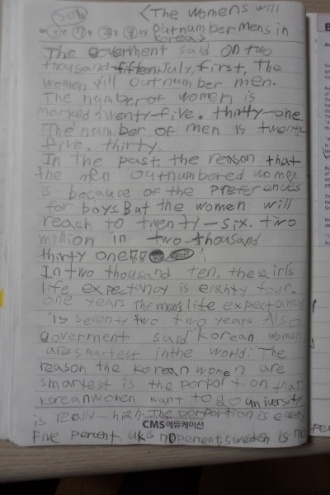 <The womens will
outnumber mens in
Korea>
The goverment said on two
thousand fifteen July, first, The
women will outnumber men.
The number of women is
marked twenty-five. thirty-one.
The number of men is twenty
five. thirty.
In the past the reason that
the men outnumbered women
is because of the preferences
for boys. But the women will
reach to twenty-six. two
million in two-thousand
thirty one
In two thousand ten, the girls
life expectancy is eighty four.
one years The mens life expectancy
is seventy two two years Also
goverment said Korean women
are smartest in the world. The
reason the korean women are
smartest is the porpotion that
korean women want to go university
is really high The is
Five percent, UK is percent, sweden is
CMS에듀케이션